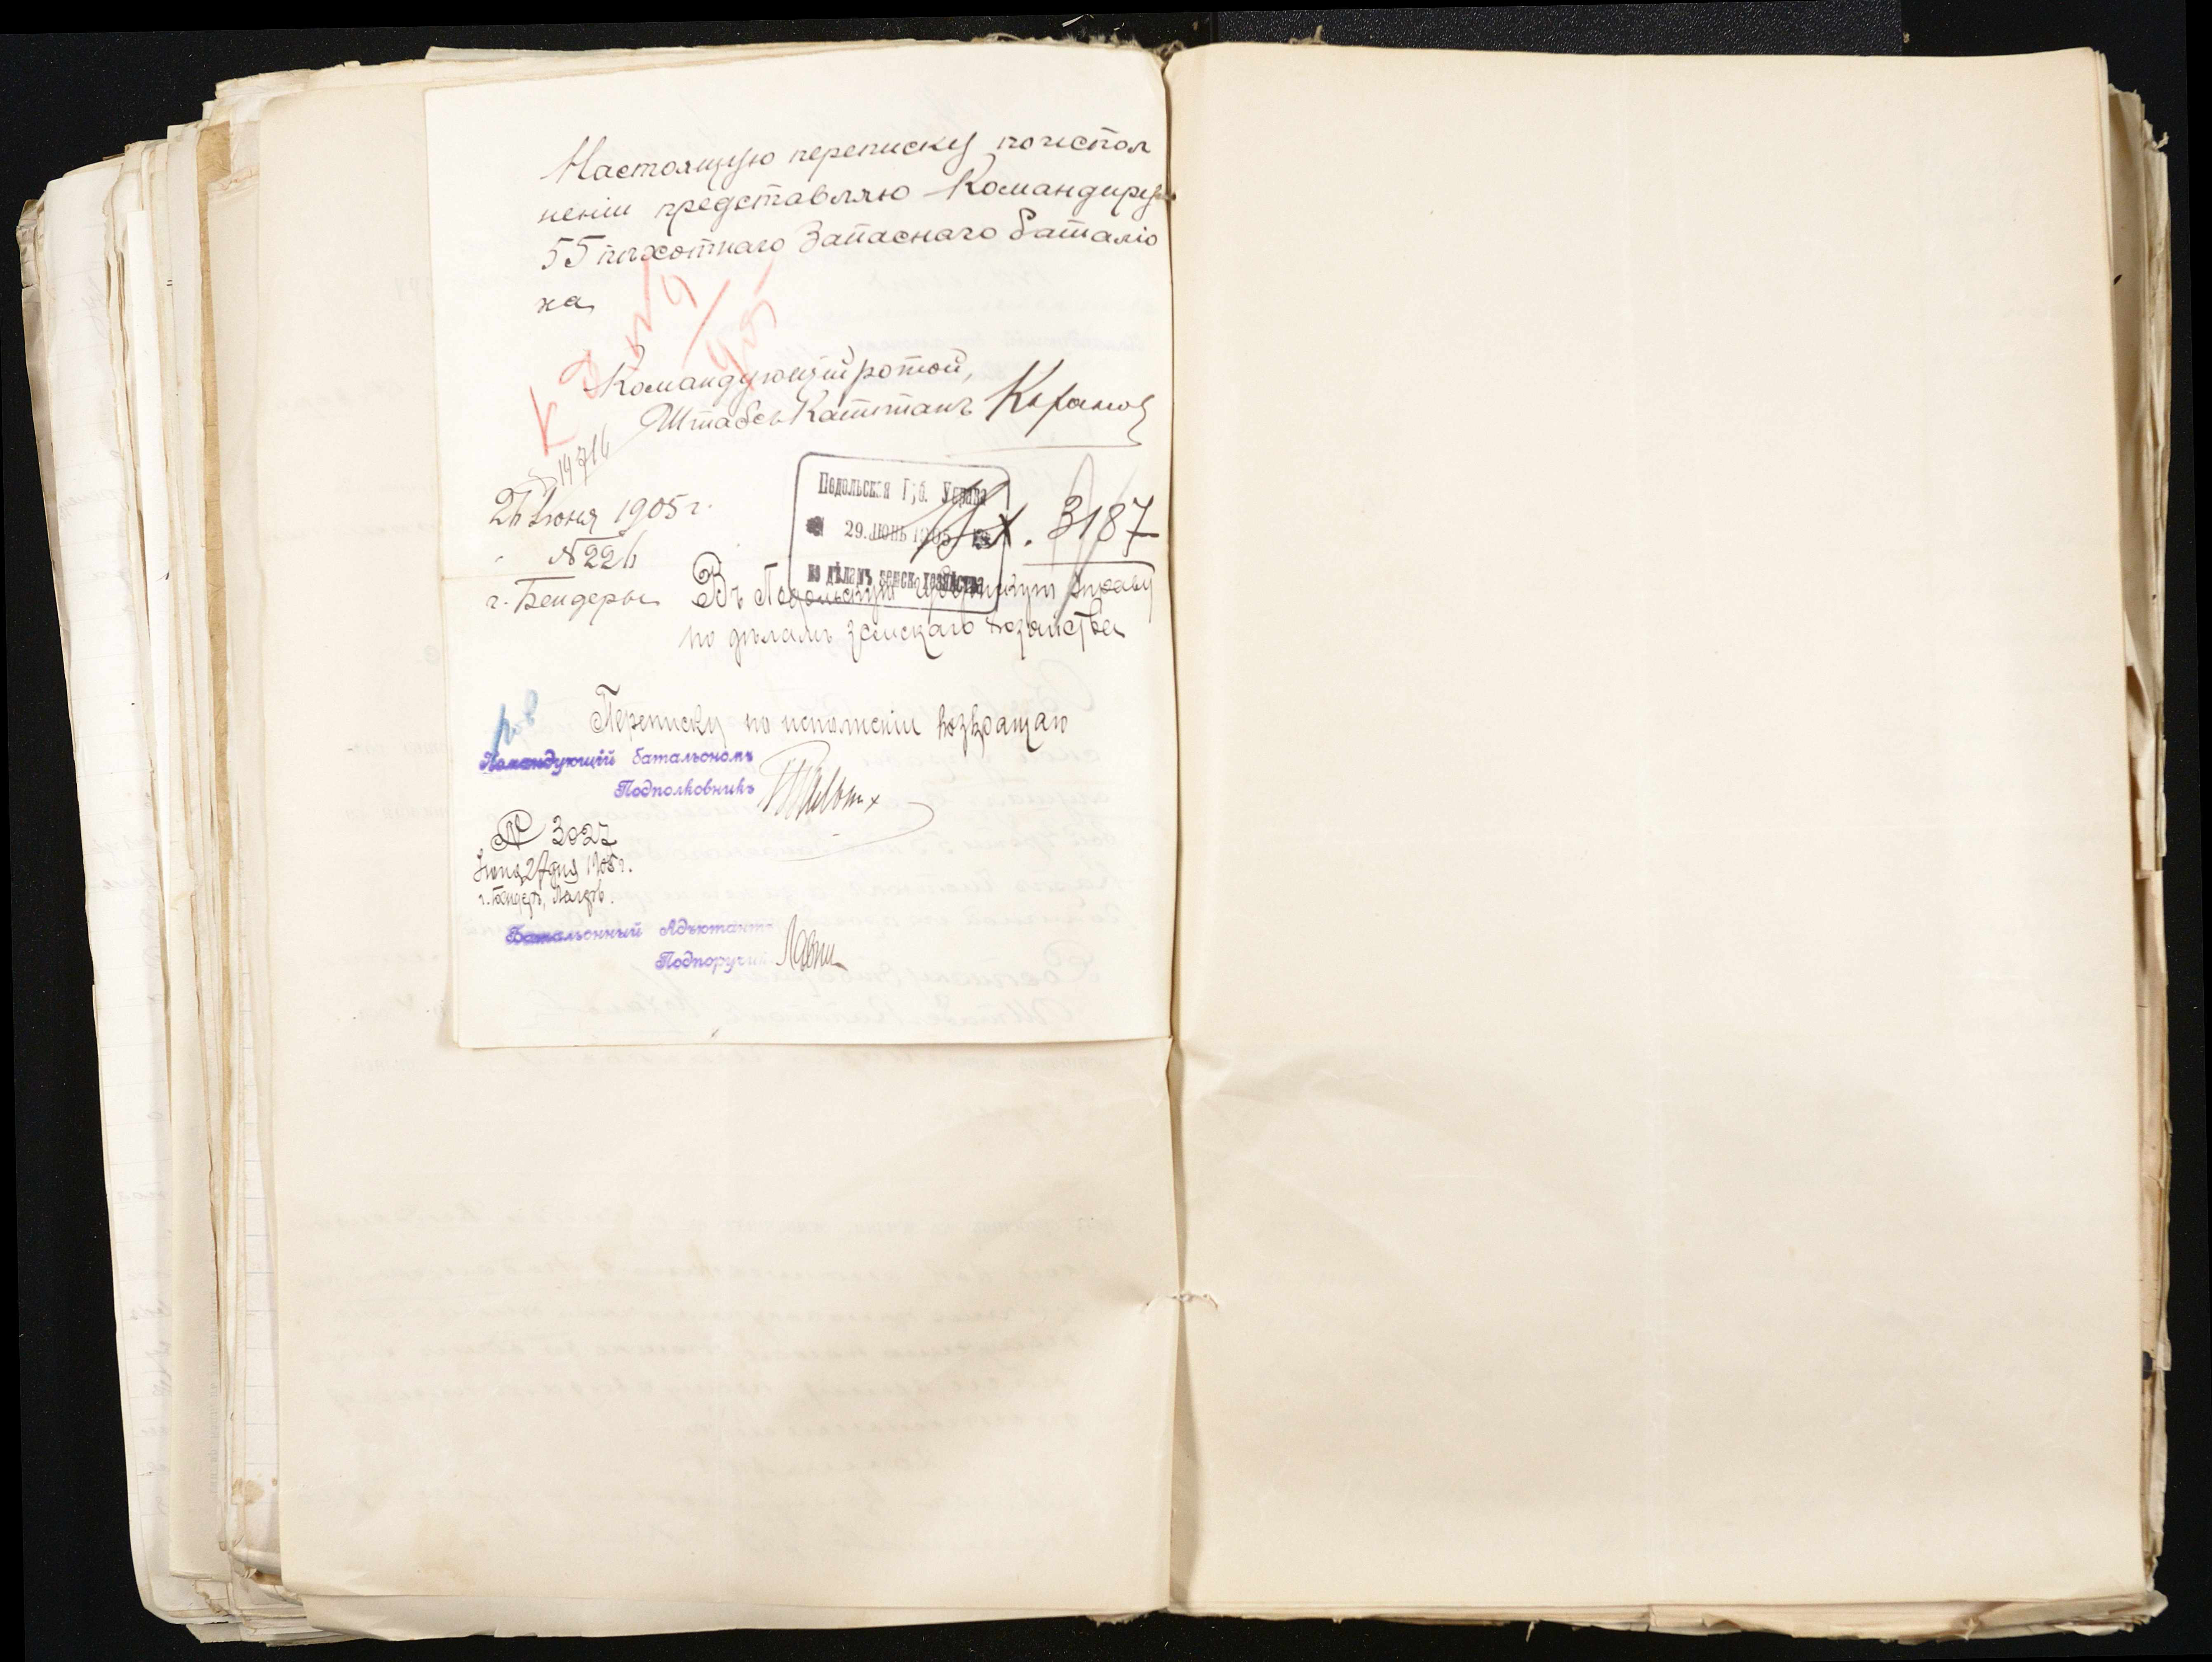 Настоящую переписку по испол
неніи представляю Командиру
55 пѣхотнаго Запаснаго баталіо
на
Командующій ротой,
Штабсъ-Капитанъ
14716
26 Іюня 1905 г.
№ 226
г. Бендеры
Подольская Губ. Управа
29. ІЮНЬ 1905
по дѣламъ земск. хозяйства
Вх. 3187
Въ Подольскую губернскую управу
по дѣламъ земскаго хозяйства
Переписку по исполненіи возвращаю
Командующій батальономъ
Подполковникъ
№ 3027
Іюня 27 дня 1905 г.
г. Бендеры, Лагерь.
Батальонный Адъютантъ
Подпоручикъ